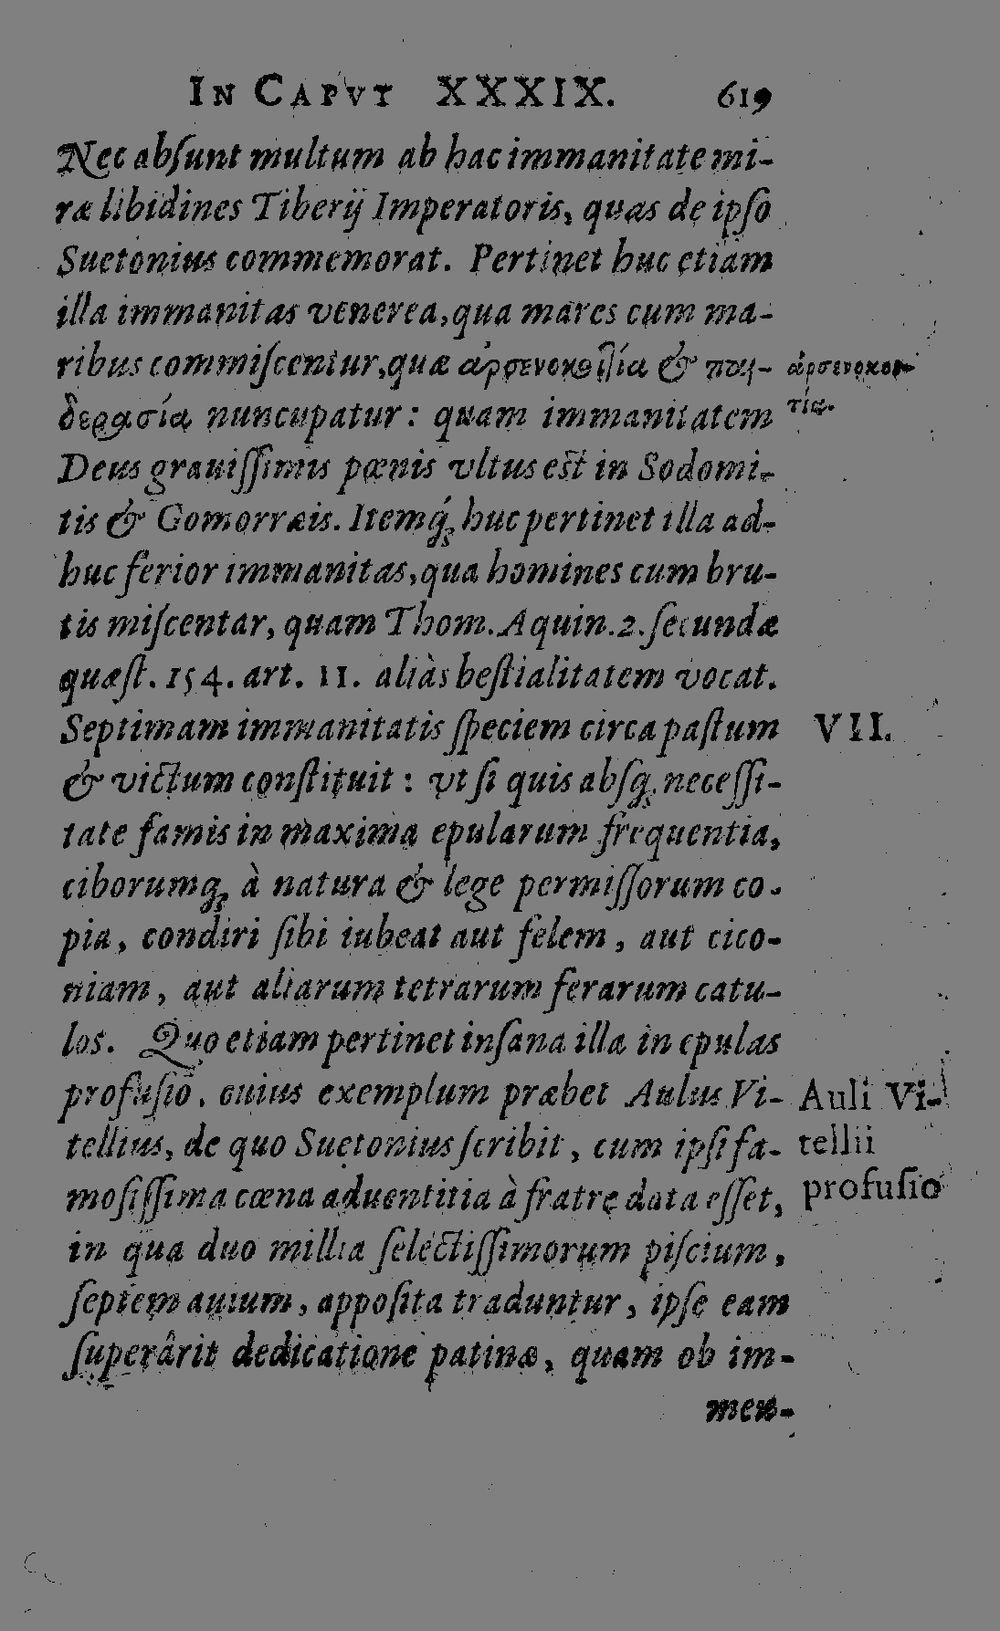 IN CAPVT XXXIX. 619
Nec abſunt multum ab hac immanitate mi-
ræ libidines Tiberij Imperatoris, quas de ipſo
Suetonius commemorat. Pertinet huc etiam
illa immanitas venerea, qua mares cum ma-
ribus commiſcentur, quæ ἀρσενοκοιτία & παι-
δερασία nuncupatur: quam immanitatem
Deus grauiſſimis pœnis vltus est in Sodomi-
tis & Gomorræis. Itemq́; huc pertinet illa ad-
huc ferior immanitas, qua homines cum bru-
tis miſcentar, quam Thom. Aquin. 2. ſecundæ
quæſt. 154. art. 11. aliàs beſtialitatem vocat.
Septimam immanitatis ſpeciem circa paſtum
& victum conſtituit: vt ſi quis abſq; neceſſi-
tate famis in maxima epularum frequentia,
ciborumq; à natura & lege permiſſorum co-
pia, condiri ſibi iubeat aut felem, aut cico-
niam, aut aliarum tetrarum ferarum catu-
los. Quo etiam pertinet inſana illa in epulas
profuſio. cuius exemplum præbet Aulus Vi-
tellius, de quo Suetonius ſcribit, cum ipſi fa-
moſiſſima cœna aduentitia à fratre data eſſet,
in qua duo millia ſelectiſſimorum piſcium,
ſeptem auium, appoſita traduntur, ipſe eam
ſuperârit dedicatione patinæ, quam ob im-
men-
ἀρσενοκοι-
τία.
VII.
Auli Vi-
tellii
profuſio